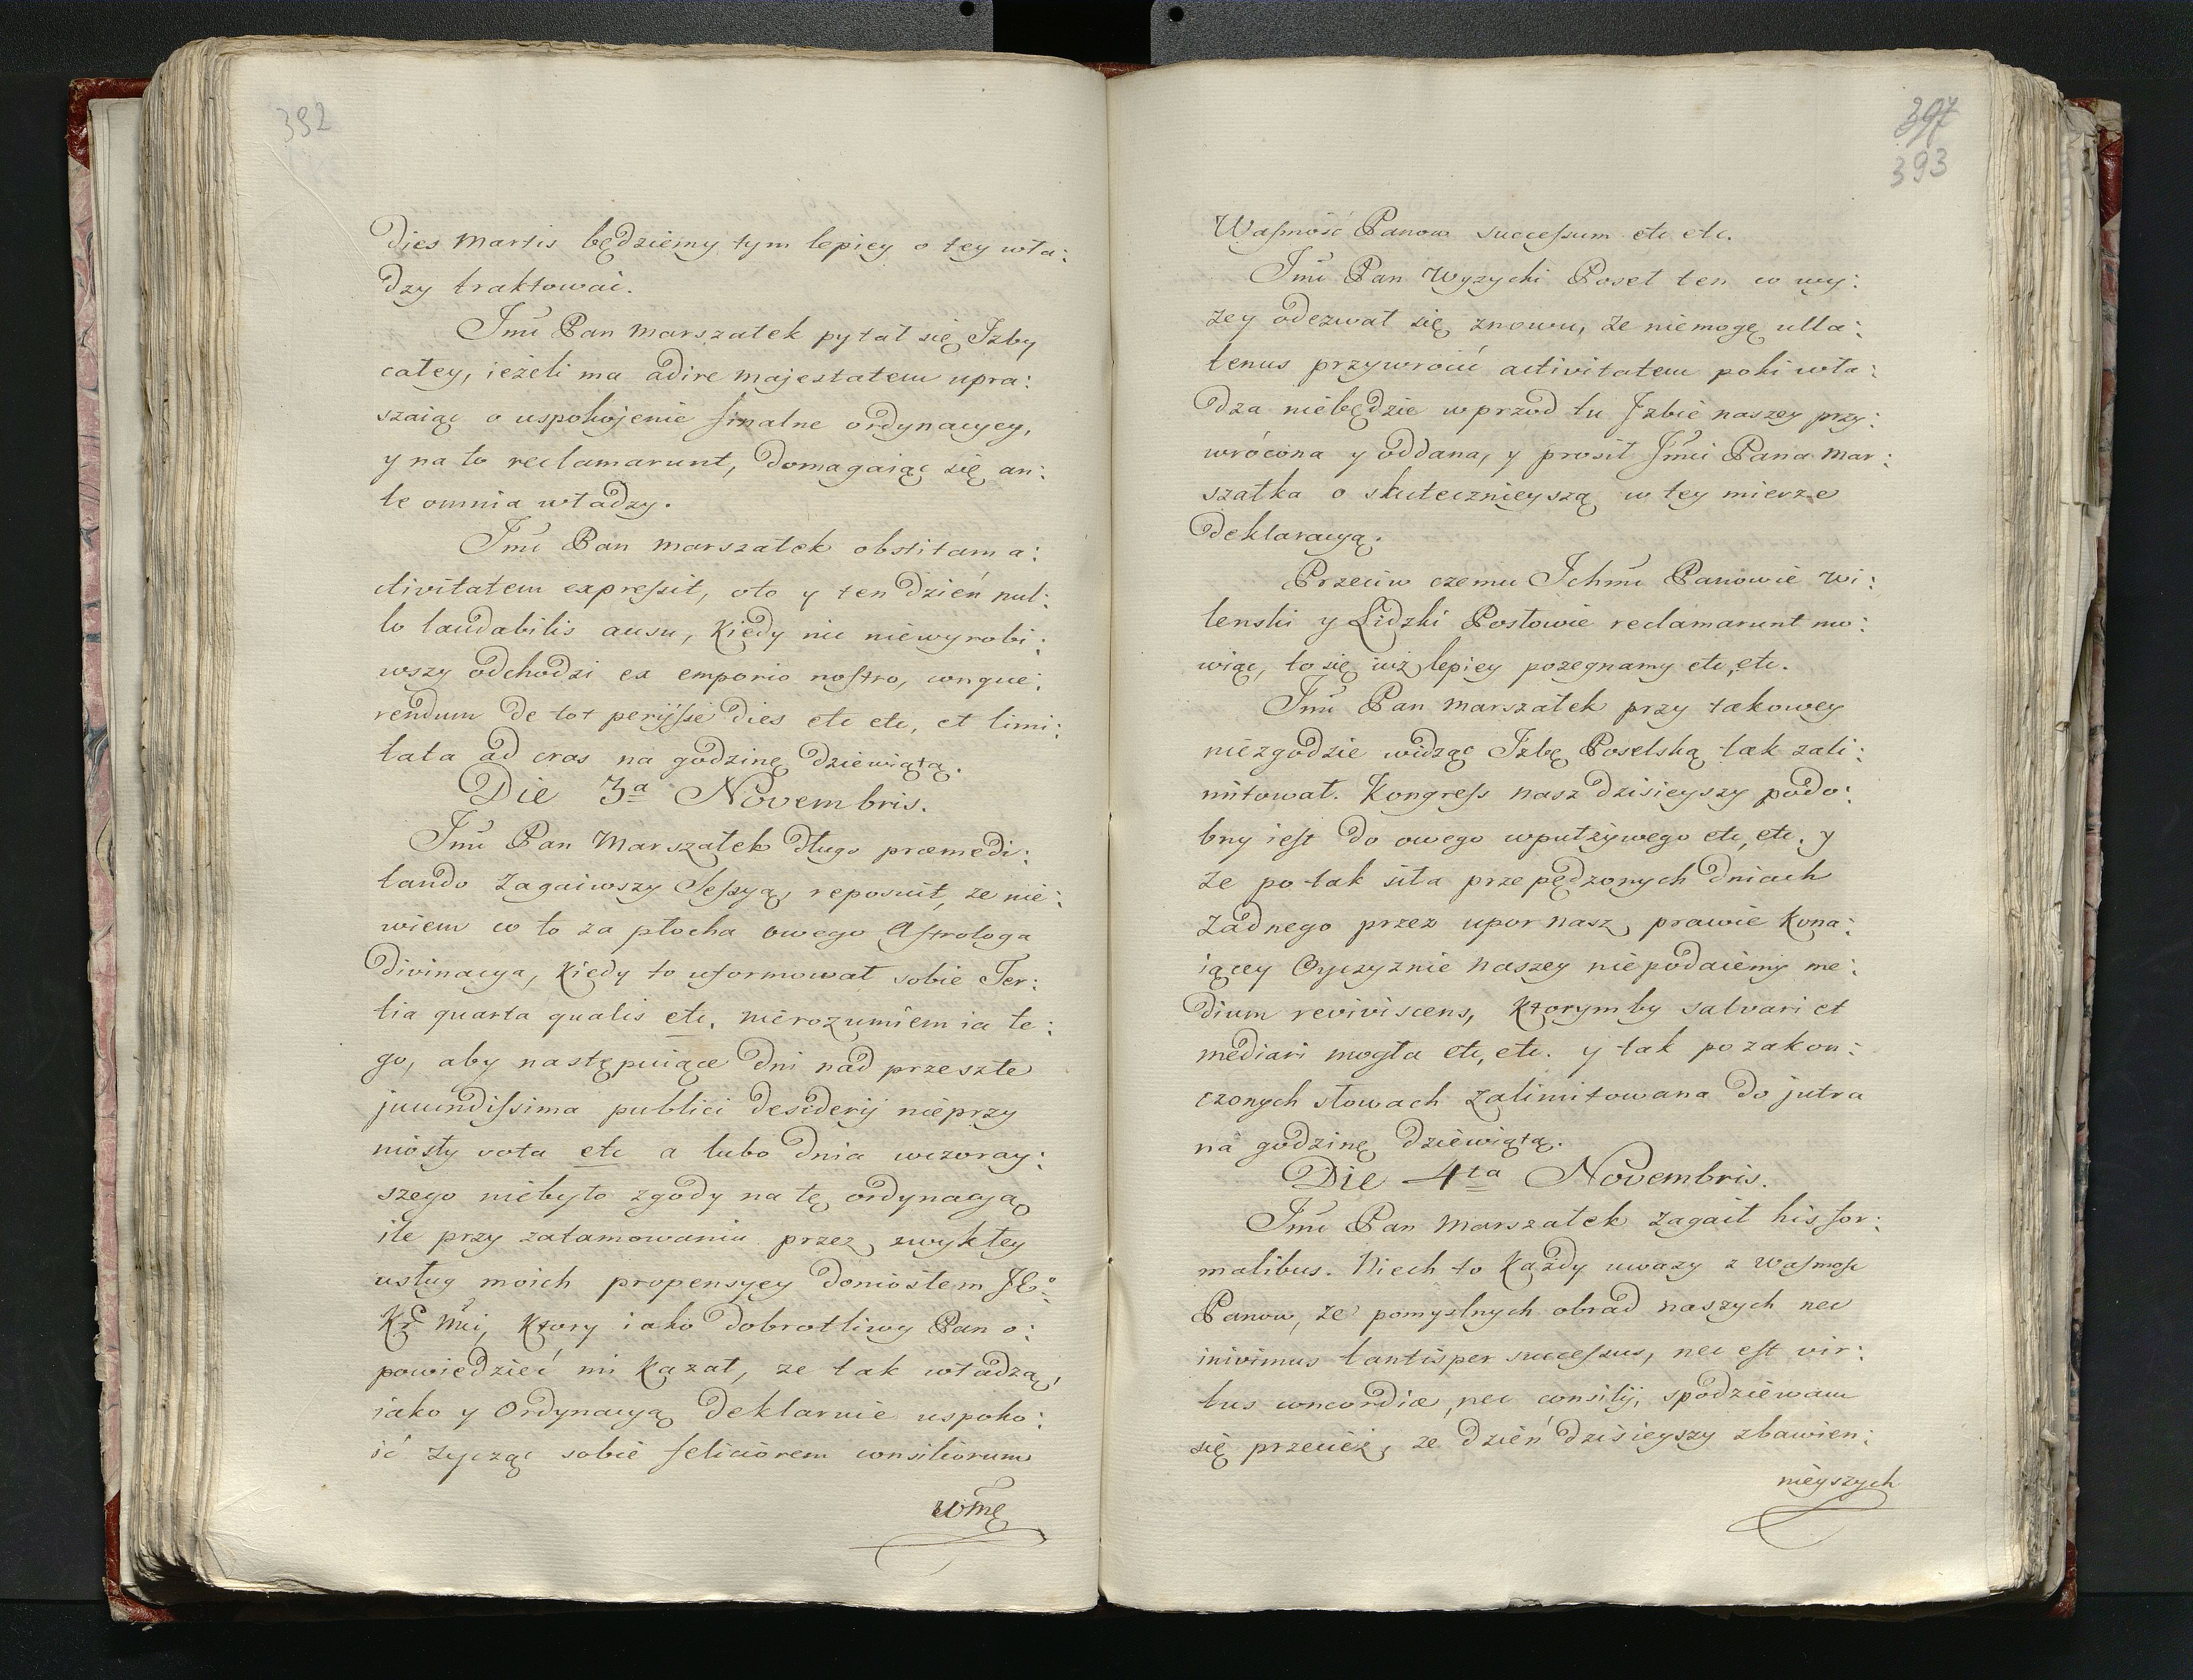 392
Dies Martis będziemy tym lepiey o tey wła:
dzy traktować.
Jmć Pan Marszałek pytał się Izby
całey, ieżeli ma adire Majestatem upra:
szaiąc o uspokojenie finalne ordynacyey,
y na to reclamarunt, domagaiąc się an:
te omnia władzy.
Jmć Pan Marszałek obstitam a:
ctivitatem expressit, oto y ten dzień nul:
lo laudabilis ausu, kiedy nic niewyrobi:
wszy odchodzi ex emporio nostro, conque:
rendum de tot perijsse dies etc etc, et limi:
tata ad cras na godzinę dziewiątą.
Die 3a Novembris.
Jmć Pan Marszałek długo præmedi:
tando zagaiwszy Sessyą, reposuit, że nie:
wiem co to za płocha owego Astrologa
Divinacya, kiedy to uformował sobie Ter:
tia quarta qualis etc. nierozumiem ia te:
go, aby następuiące dni nad przeszłe
jucundissima publici desiderij nieprzy
niosły vota etc a lubo dnia wczoray:
szego niebyło zgody na tę ordynacyą
ile przy zatamowaniu przez zwykłey
usług moich propensyey doniosłem JEo:
Kr Mci, ktory iako dobrotliwy Pan o:
powiedzieć mi kazał, ze tak władzą,
iako y Ordynacyą deklaruie uspoko:
ić zycząc sobie feliciorem consiliorum
WMę
397
393
Wasmość Panow successum etc etc.
Jmć Pan Wyzycki Poseł ten co wy:
zey odezwał się znowu, że niemogę ulla:
tenus przywrocić activitatem poki wła:
dza niebędzie wprzod tu Izbie naszey przy:
wrócona y oddana, y prosił Jmci Pana Mar:
szałka o skutecznieyszą w tey mierze
deklaracyą.
Przeciw czemu Ichmć Panowie Wi:
lenski y Lidzki Posłowie reclamarunt mo:
wiąc, to się iuż lepiey pozegnamy etc, etc.
Jmć Pan Marszałek przy takowey
niezgodzie widząc Izbę Poselską tak zali:
mitował. Kongress nasz dzisieyszy podo:
bny iest do owego wputżywego etc, etc. y
że po tak siła przepędzonych dniach
żadnego przez upor nasz, prawie kona:
iącey Oyczyznie naszey niepodaiemy me:
dium reviviscens, ktorymby salvari et
mediari mogła etc, etc. y tak po zakon:
czonych słowach zalimitowana do jutra
na godzinę dziewiątą.
Die 4ta Novembris.
Jmć Pan Marszałek zagaił his for:
malibus. Niech to każdy uwazy z Wasmość
Panow, że pomyslnych obrad naszych nec
inivimus tantisper successus, nec est vir:
tus concordiæ, nec consilij, spodziewam
się przecież, ze dzień dzisieyszy zbawien:
nieyszych